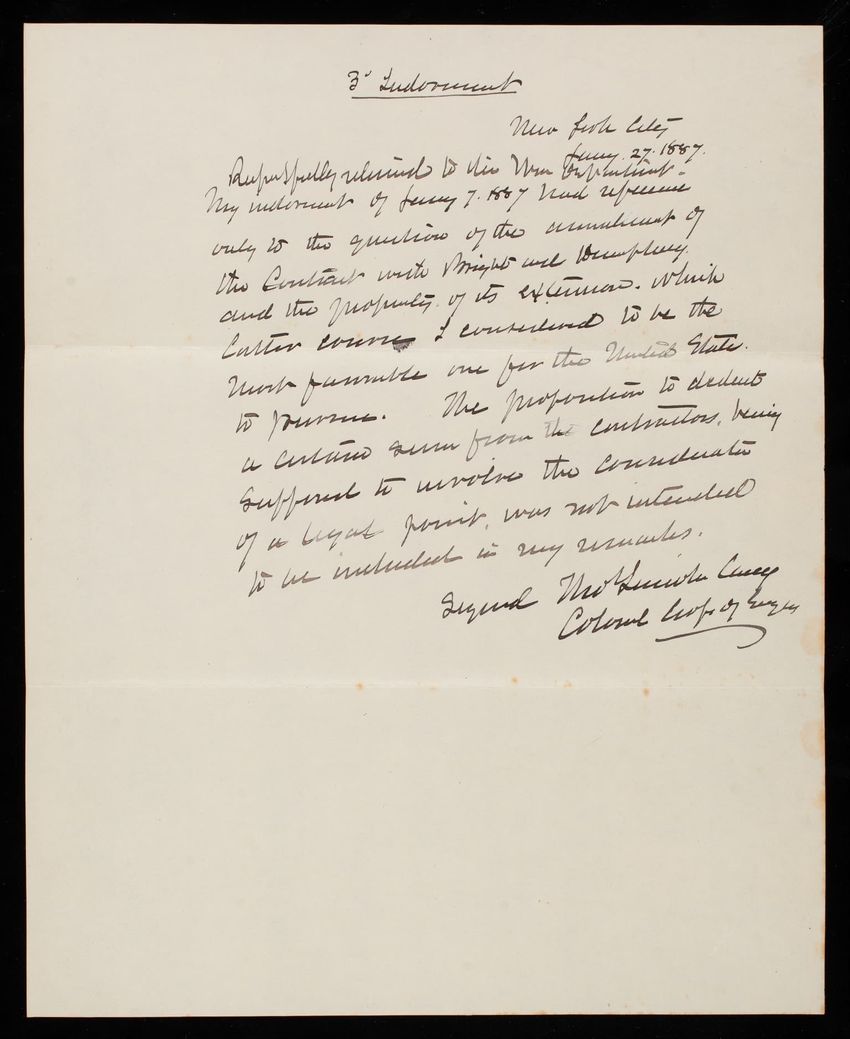 3d Indorsement
New York City
Jany. 27. 1887.
Respectfully returned to the War Department.
My indorsement of Jany 7. 1887 had reference
only to the question of the annulment of
the Contract with Bright and Humphrey
and the propriety of its extension. Which
latter course I considered to be the
most favorable one for the United States
to pursue. The proposition to deduct
a certain sum from the contractors, being
supposed to involve the consideration
of a legal point, was not intended
to be included in my remarks.
Signed Thos Lincoln Casey
Colonel Corps of Engrs